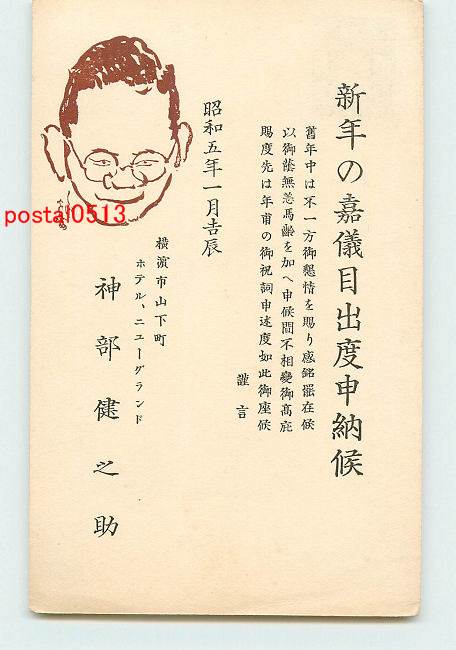 新年の嘉儀目出度申納候
舊年中は不一方御懇情を賜り感銘罷在候
以御蔭無恙馬齢を加へ申候間不相變御髙庇
賜度先は年甫の御祝詞申述度如此御座候
謹言
昭和五年一月吉辰
横濱市山下町
ホテル、ニューグランド
神部健之助
postal0513